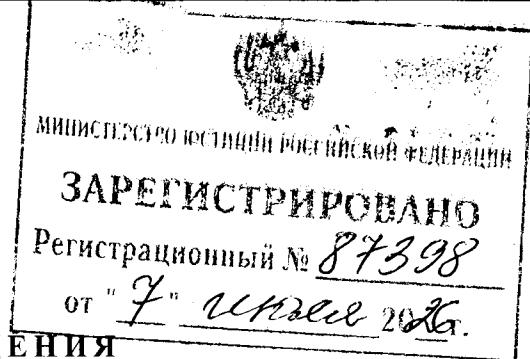 МИНИСТЕРСТВО ЮСТИЦИИ РОССИЙСКОЙ ФЕДЕРАЦИИ
ЗАРЕГИСТРИРОВАНО
Регистрационный № 87398
от "7" июля 2026г.
ЕНИЯ